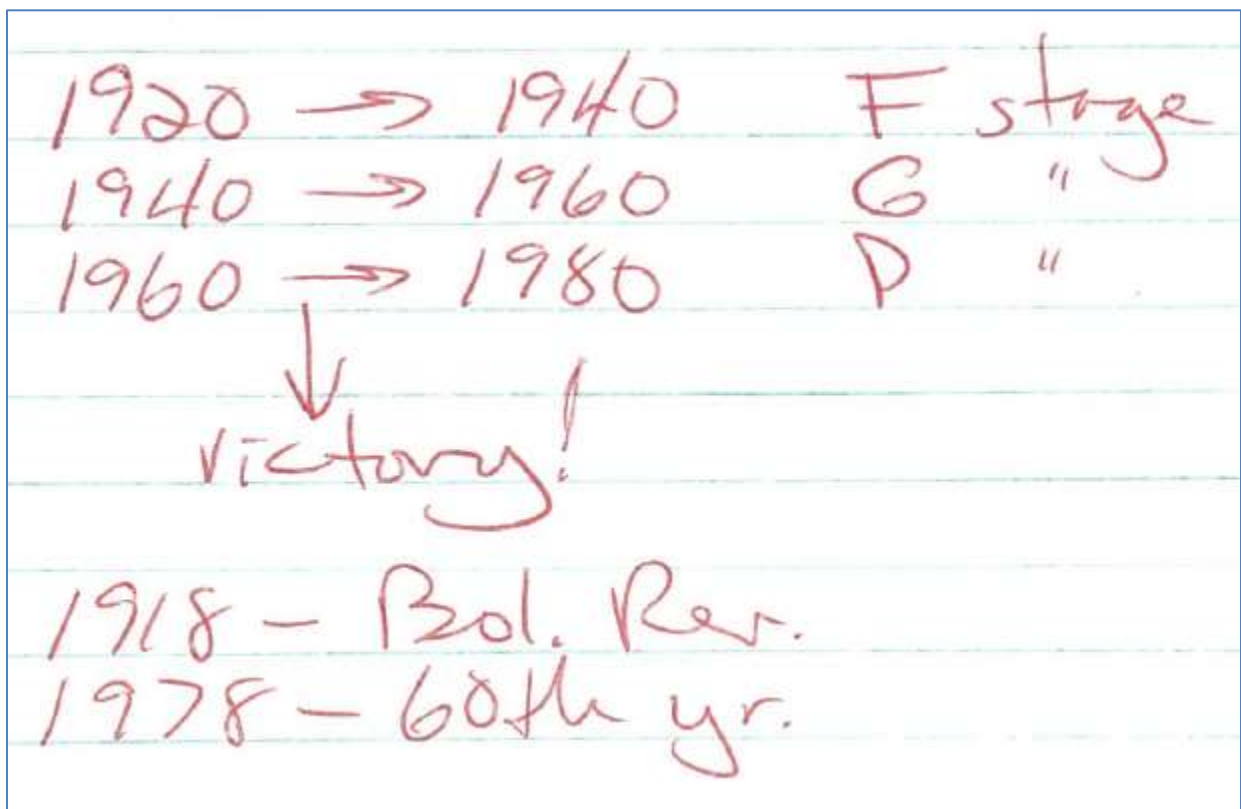 1920 → 1940 F stage
1940 → 1960 G "
1960 → 1980 P "
↓
victory!
1918 – Bol. Rev.
1978 – 60th yr.